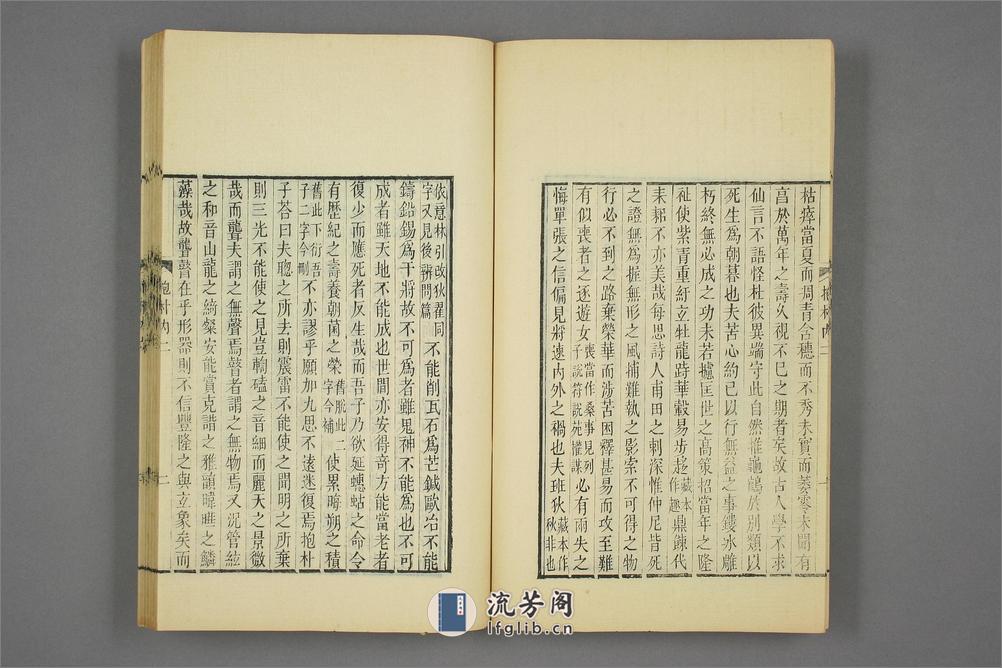 枯瘁當夏而凋青含穗而不秀未實而萎零未聞有
享於萬年之壽久視不已之期者矣故古人學不求
仙言不語怪杜彼異端守此自然推龜鶴於別類以
死生爲朝暮也夫苦心約己以行無益之事鏤冰雕
朽終無必成之功未若攄匡世之高策招當年之隆
祉使紫青重紆玄牡龍跱華轂易步趍藏本作趣鼎餗代
耒耜不亦美哉每思詩人甫田之刺深惟仲尼皆死
之證無爲握無形之風捕難執之影索不可得之物
行必不到之路棄榮華而涉苦困釋甚易而攻至難
有似喪者之逐遊女喪當作桑事見列子說符說苑權謀必有兩失之
悔單張之信偏見將速內外之禍也夫班狄藏本作秋非也
抱朴內二
依意林引改狄翟同字又見後辨問篇不能削瓦石爲芒鍼歐冶不能
鑄鉛錫爲干將故不可爲者雖鬼神不能爲也不可
成者雖天地不能成也世間亦安得奇方能當老者
復少而應死者反生哉而吾子乃欲延蟪蛄之命令
有歷紀之壽養朝菌之榮舊脫此二字今補使累晦朔之積
舊此下衍吾子二字今刪不亦謬乎願加九思不遠迷復焉抱朴
子荅曰夫聰之所去則震雷不能使之聞明之所棄
則三光不能使之見豈輷磕之音細而麗天之景微
哉而聾夫謂之無聲焉瞽者謂之無物焉又況管絃
之和音山龍之綺粲安能賞克諧之雅韻暐曄之鱗
藻哉故聾瞽在乎形器則不信豐隆之與玄象矣而
抱朴內二
二
流芳阁
lfglib.cn